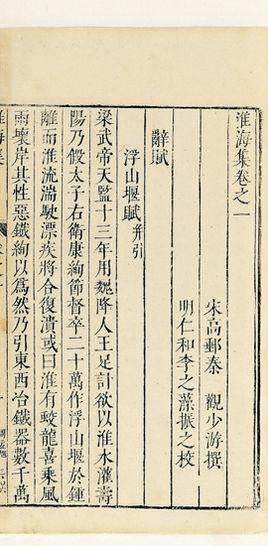 淮海集卷之一
宋高郵秦　觀少游撰
明仁和李之藻振之校
辭賦
浮山堰賦并引
梁武帝天監十三年用魏降人王足計欲以淮水灌壽
陽乃假太子右衛康絢節督卒二十萬作浮山堰於鍾
離而淮流湍駛漂疾將合復潰或曰淮有蛟龍喜乘風
雨壞岸其性惡鐵絢以為然乃引東西冶鐵器數千萬
淮海集